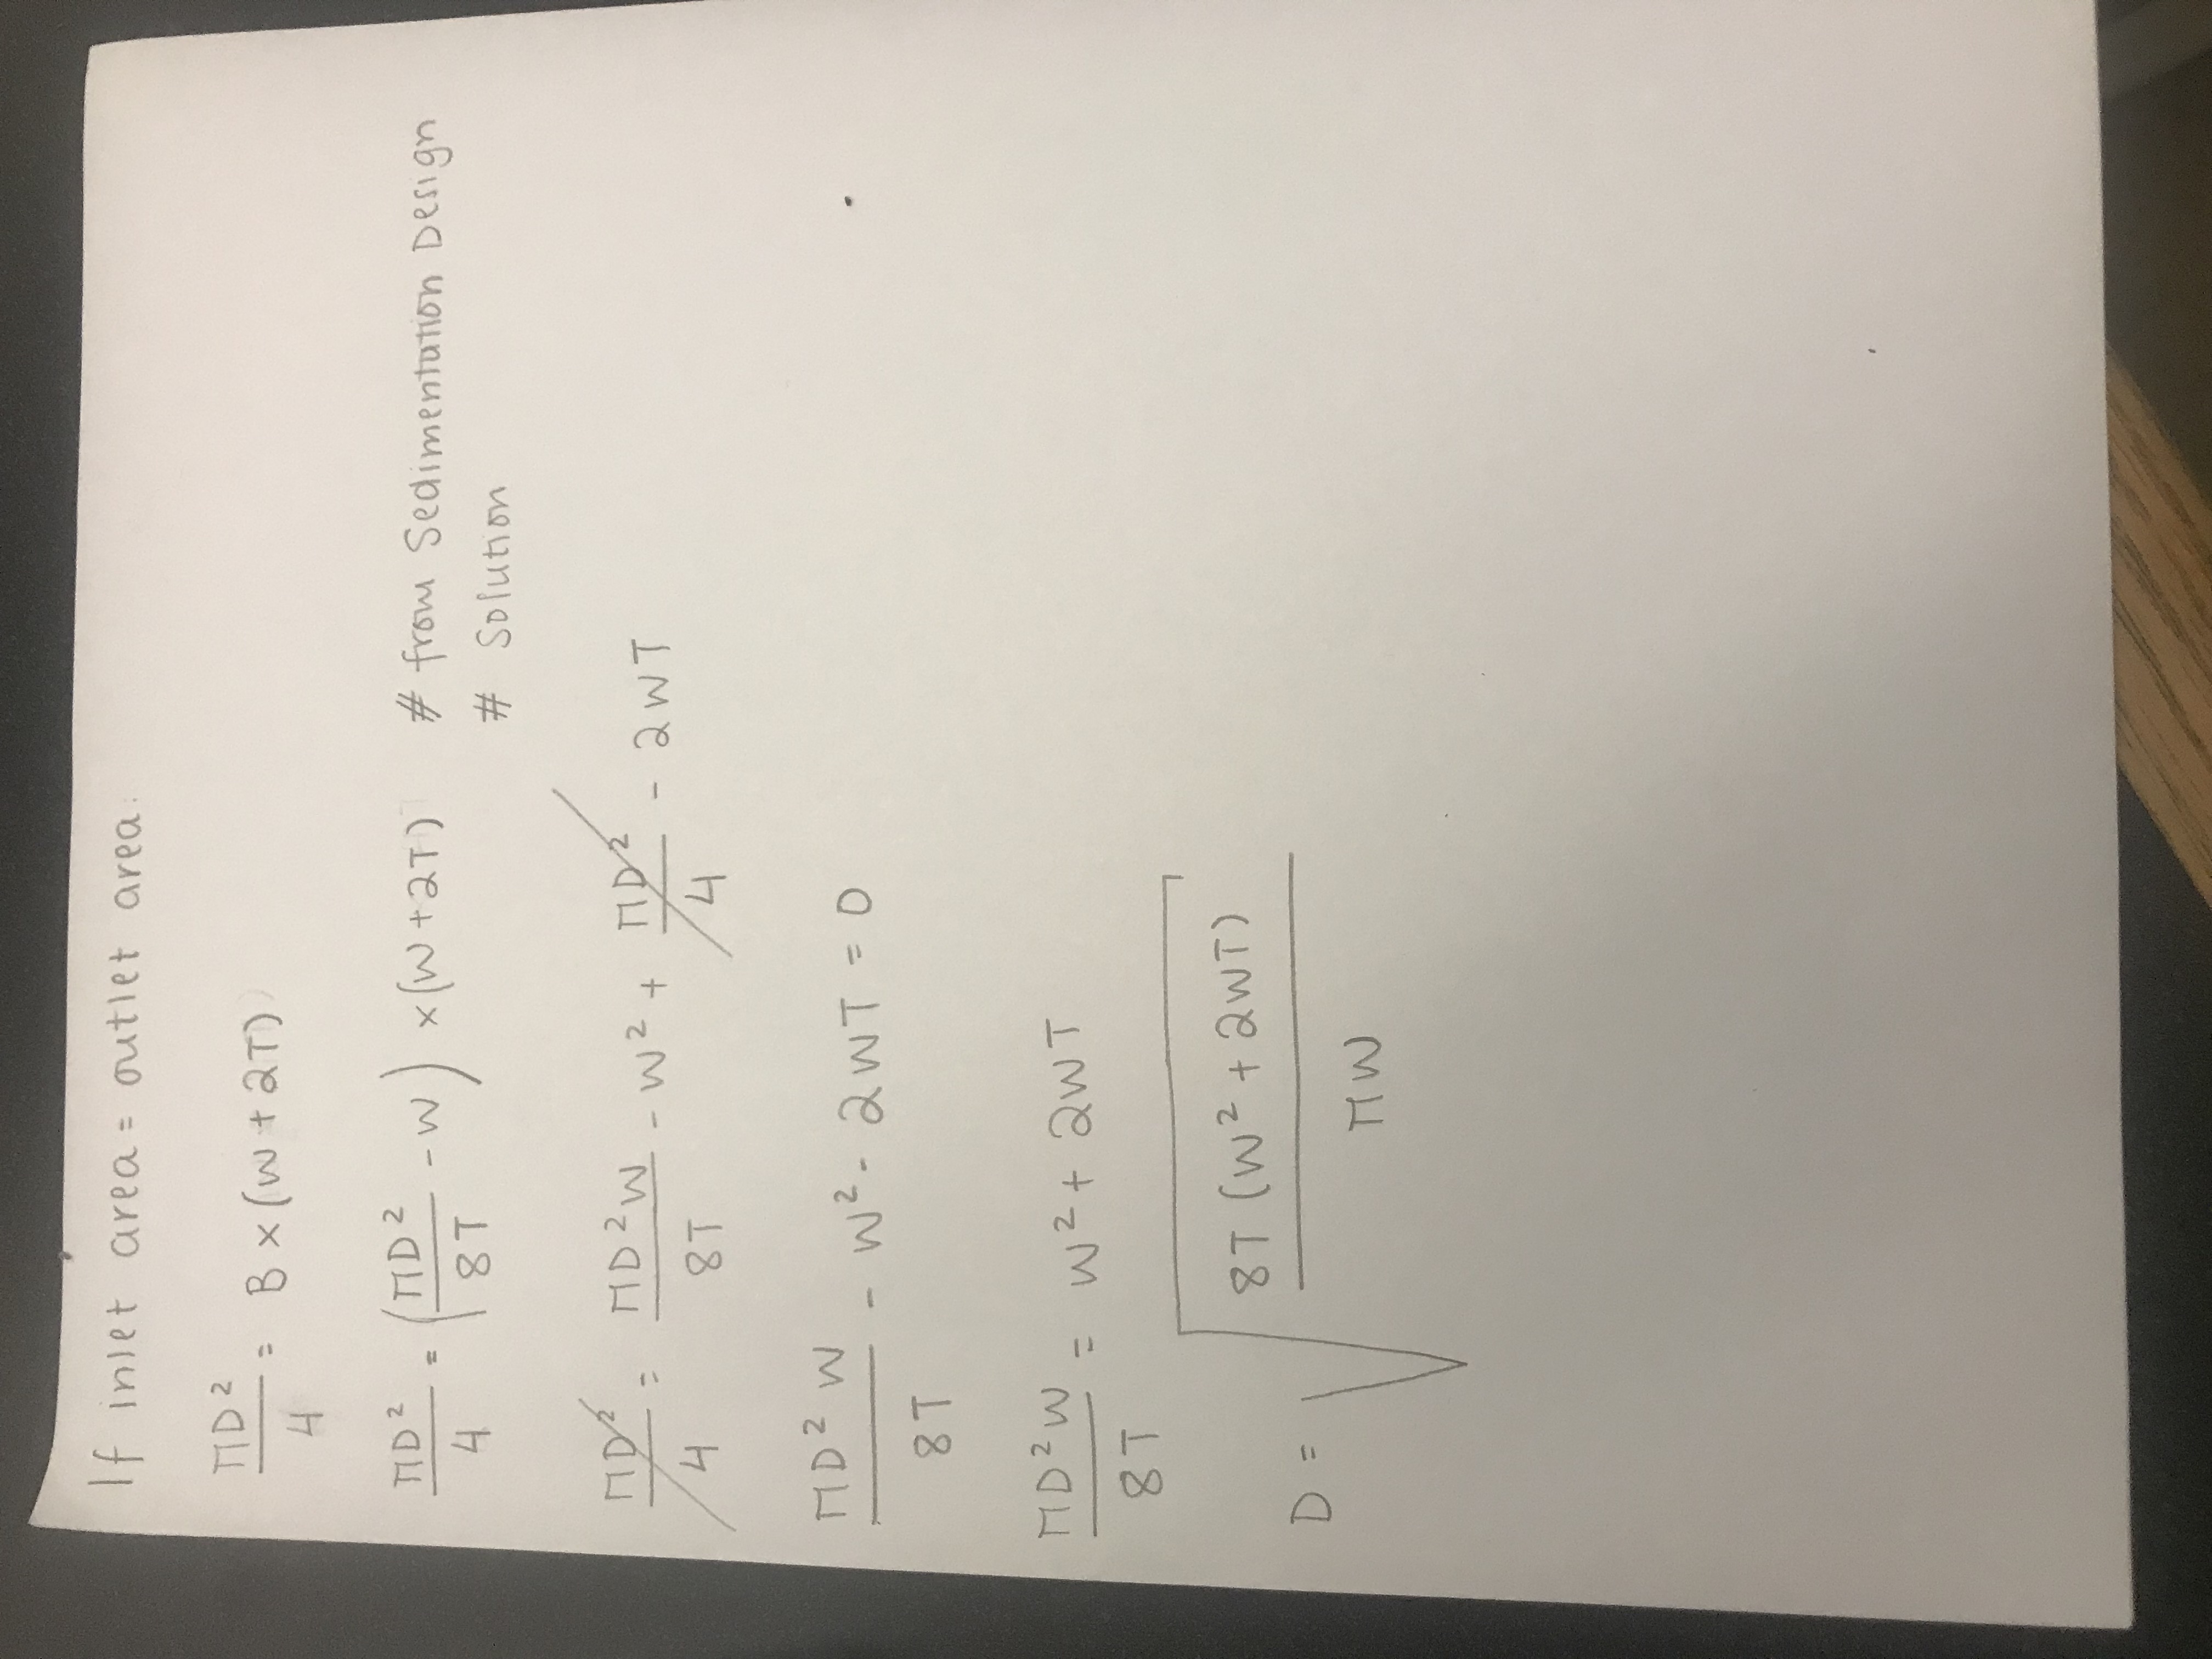 If inlet area = outlet area:
ΠD²/4 = B × (W + 2T)
ΠD²/4 = (ΠD²/8T - W) × (W + 2T) # from Sedimentation Design
# Solution
ΠD²/4 = ΠD²W/8T - W² + ΠD²/4 - 2WT
ΠD²W/8T - W² - 2WT = 0
ΠD²W/8T = W² + 2WT
D = √(8T (W² + 2WT)/ΠW)